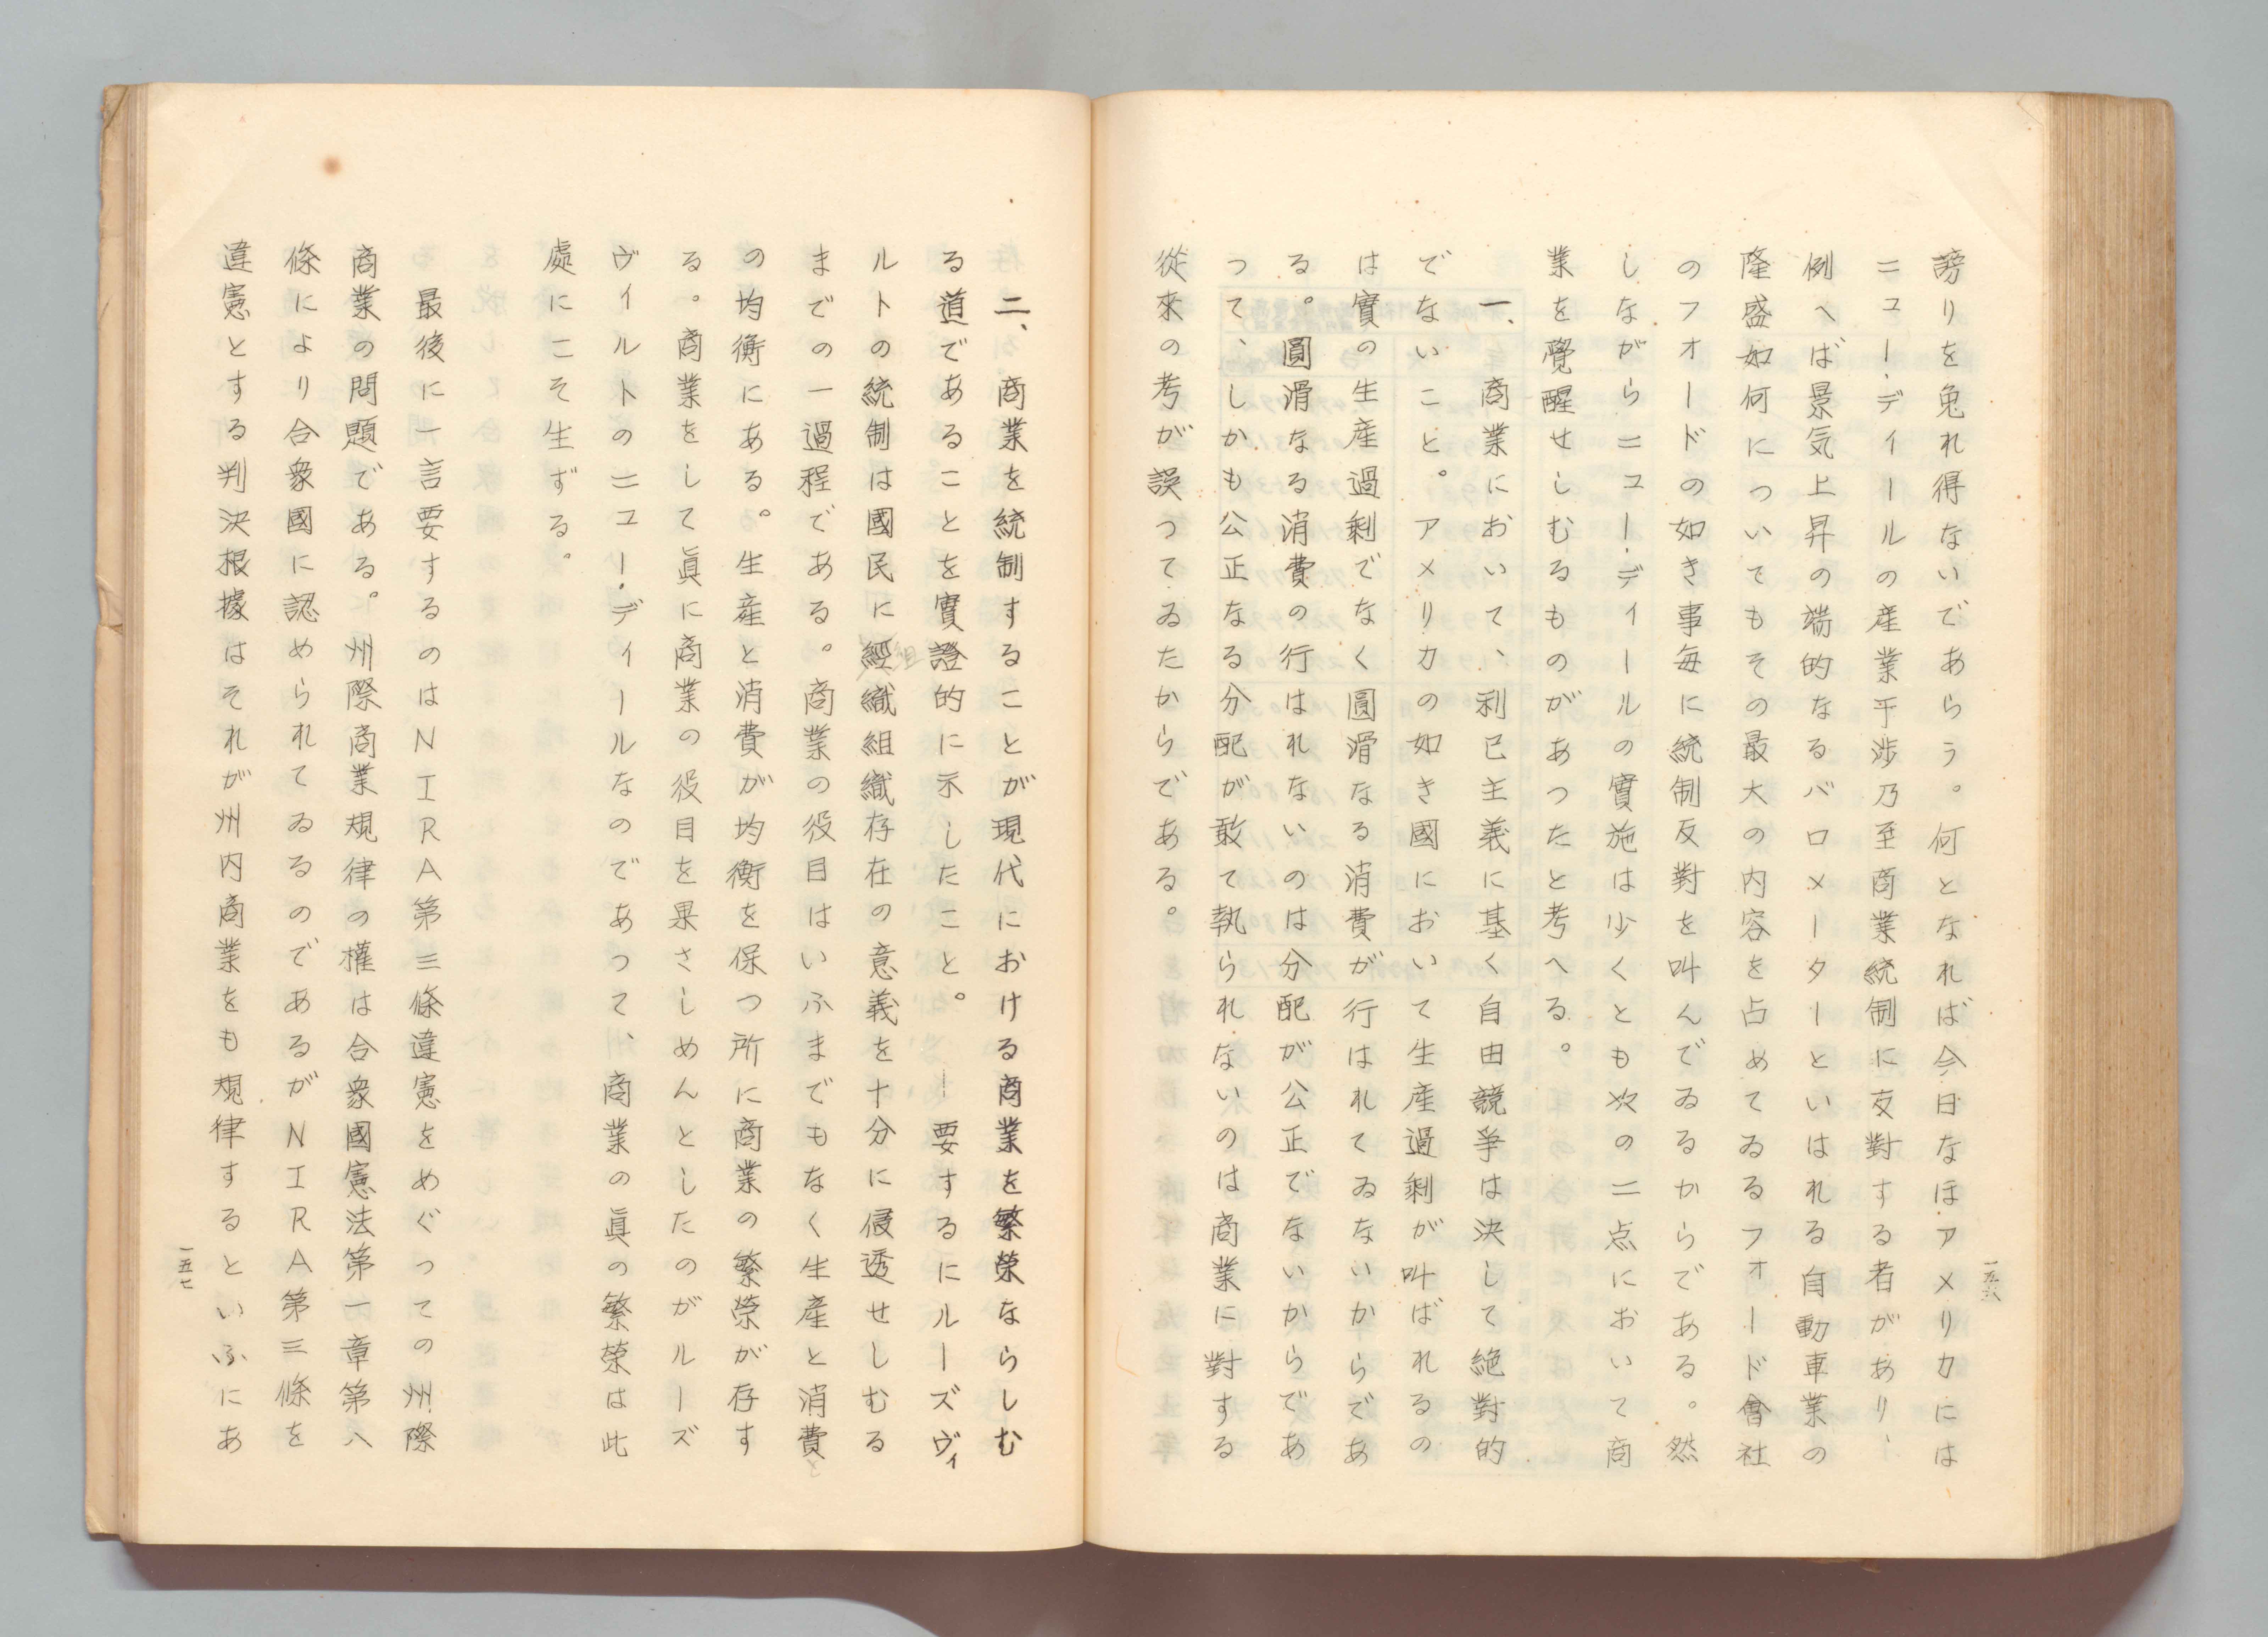 一五六
謗りを免れ得ないであらう。何となれば今日なほアメリカには
ニュー・ディールの産業干渉乃至商業統制に反對する者があり、
例へば景気上昇の端的なるバロメーターといはれる自動車業の
隆盛如何についてもその最大の内容を占めてゐるフォード會社
のフォードの如き事毎に統制反對を叫んでゐるからである。然
しながらニュー・ディールの實施は少くとも次の二点において商
業を覺醒せしむるものがあつたと考へる。
一、商業において、利己主義に基く自由競爭は決して絶對的
でないこと。アメリカの如き國において生産過剰が叫ばれるの
は實の生産過剰でなく圓滑なる消費が行はれてゐないからであ
る。圓滑なる消費の行はれないのは分配が公正でないからであ
つて、しかも公正なる分配が敢て執られないのは商業に對する
從來の考が誤つてゐたからである。
二、商業を統制することが現代における商業を繁榮ならしむ
る道であることを實證的に示したこと。―要するにルーズヴィ
ルトの統制は國民に經織組織存在の意義を十分に侵透せしむる
組
までの一過程である。商業の役目はいふまでもなく生産と消費と
の均衡にある。生産と消費が均衡を保つ所に商業の繁榮が存す
る。商業をして眞に商業の役目を果さしめんとしたのがルーズ
ヴィルトのニュー・ディールなのであつて、商業の眞の繁榮は此
處にこそ生ずる。
最後に一言要するのはNIRA第三條違憲をめぐつての州際
商業の問題である。州際商業規律の權は合衆國憲法第一章第八
條により合衆國に認められてゐるのであるがNIRA第三條を
違憲とする判決根據はそれが州内商業をも規律するといふにあ
一五七